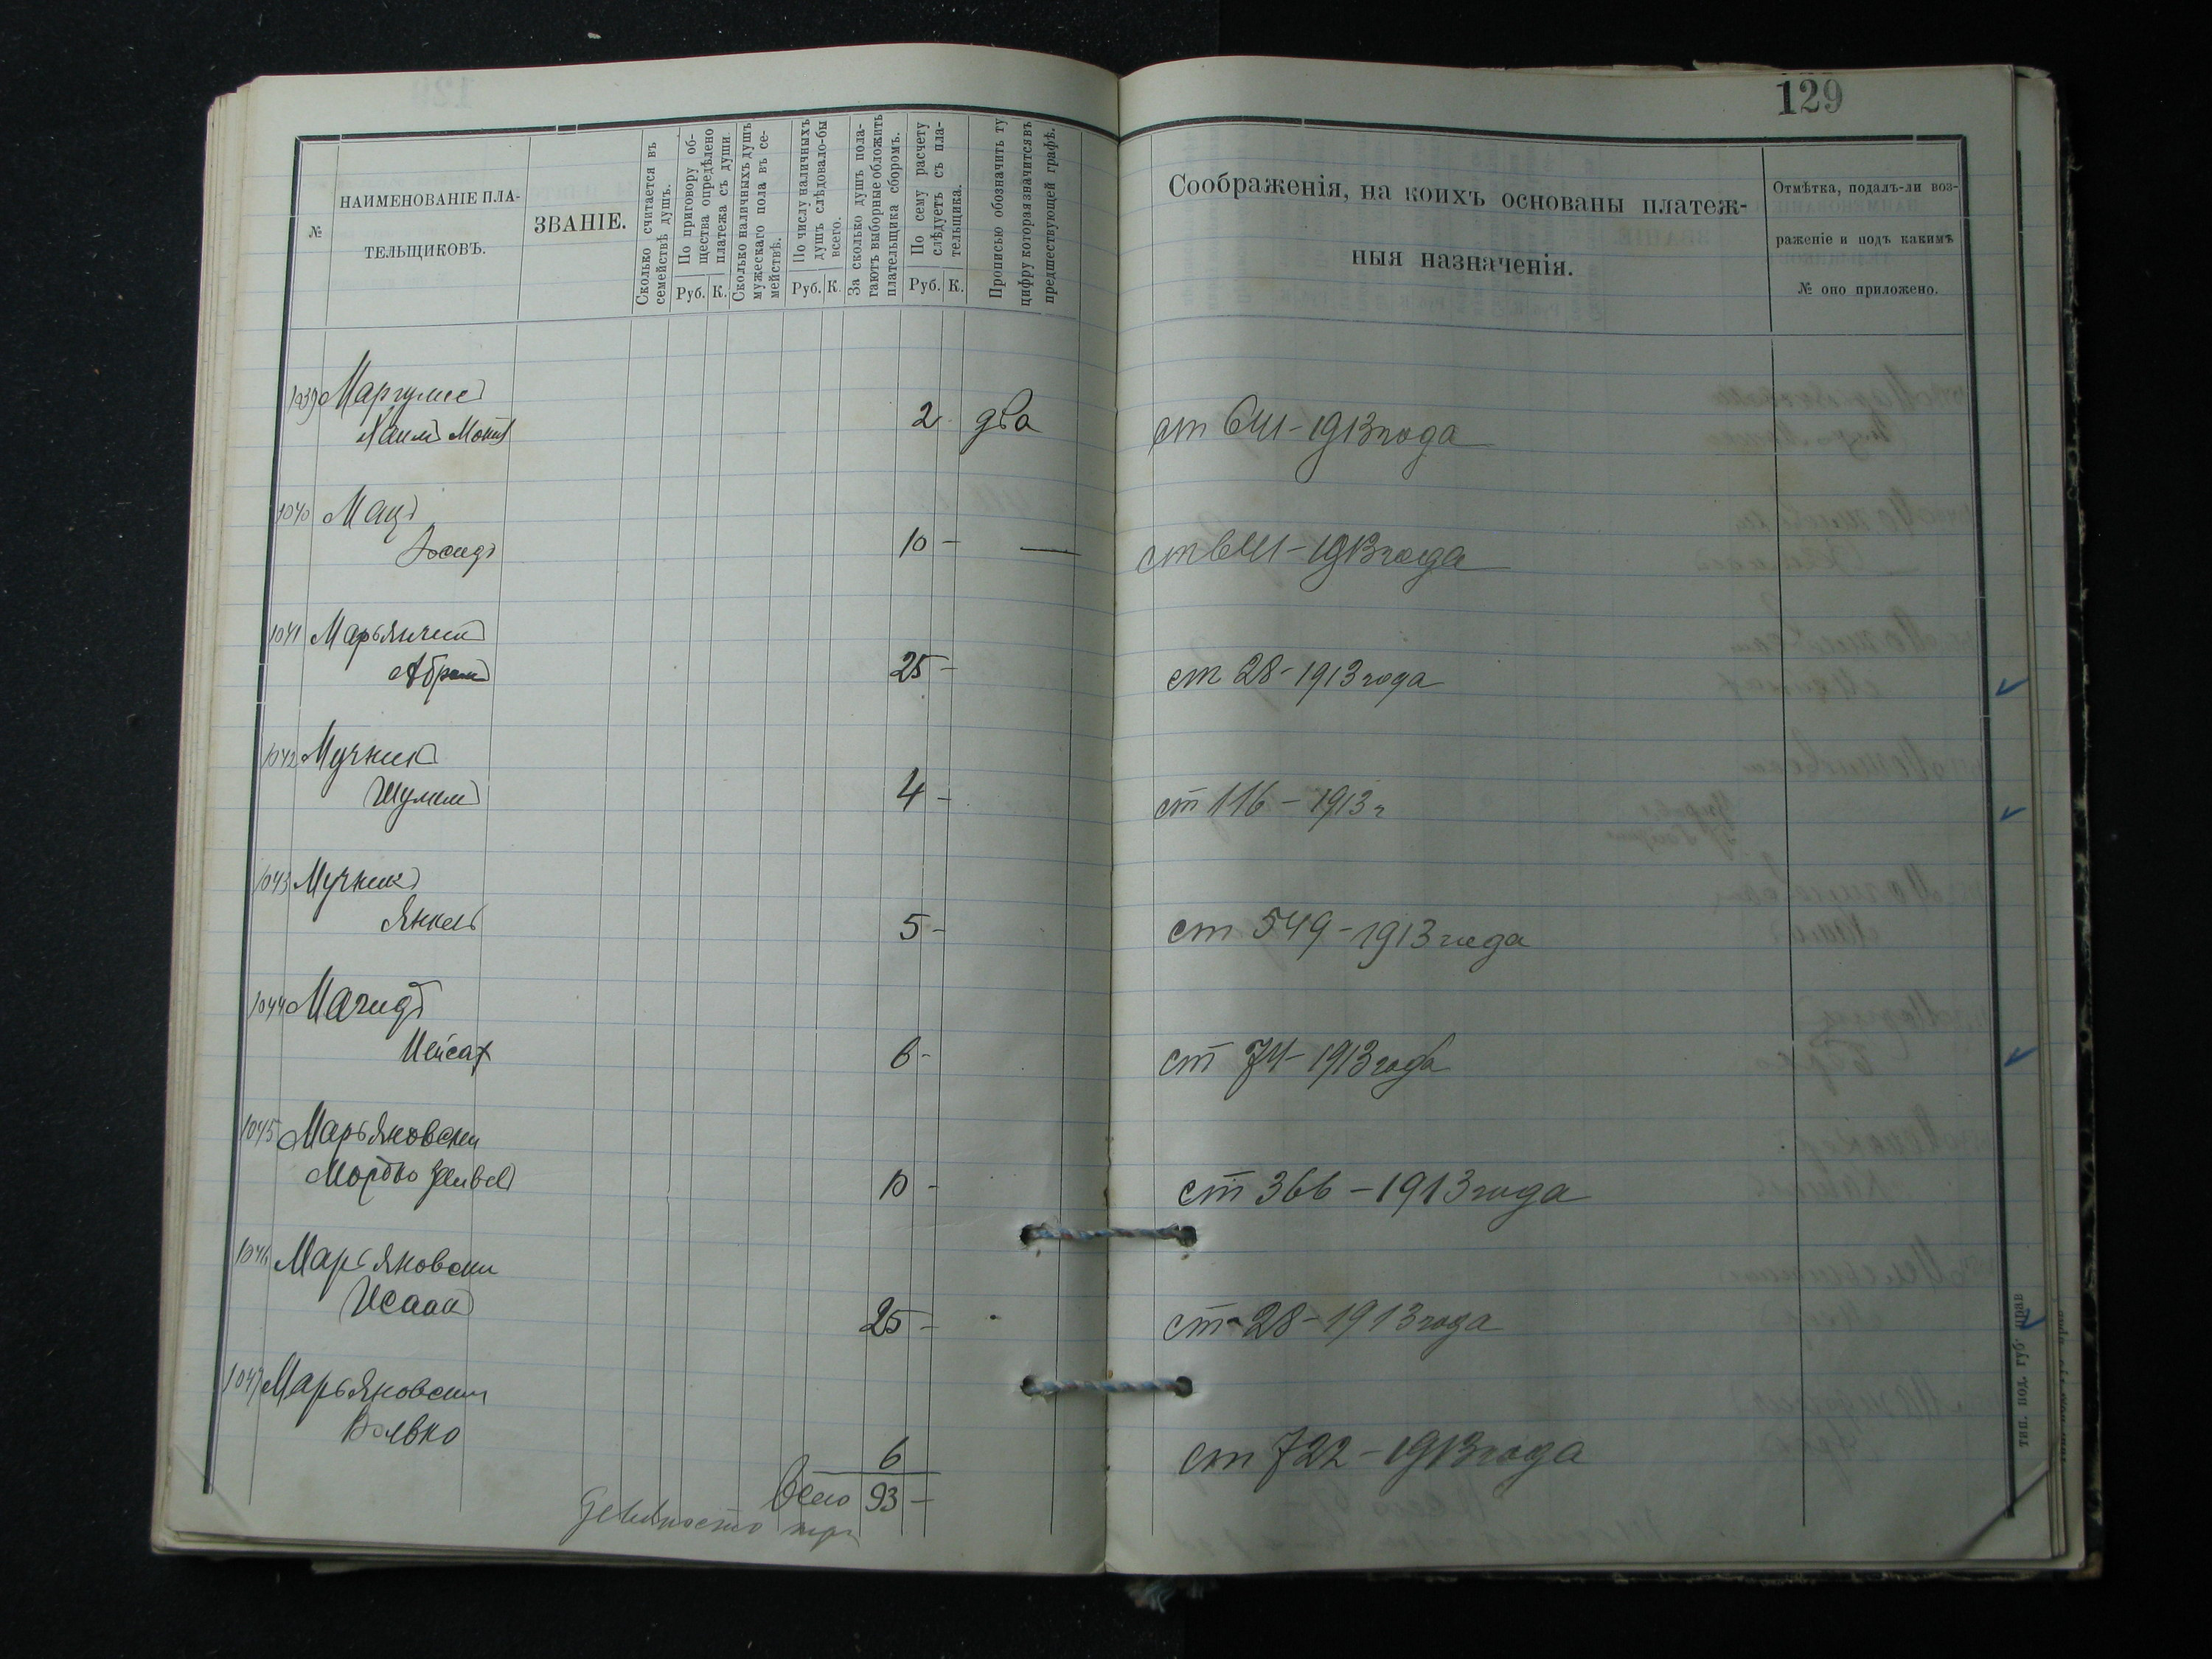 129
№
НАИМЕНОВАНІЕ ПЛА-
ТЕЛЬЩИКОВЪ.
ЗВАНІЕ.
Сколько считается въ
семействѣ душъ.
По приговору об-
щества опредѣлено
платежа съ души.
Руб. К.
Сколько наличныхъ душъ
мужескаго пола въ се-
мействѣ.
По числу наличныхъ
душъ слѣдовало-бы
всего.
Руб. К
За сколько душъ пола-
гаютъ выборные обложить
плательщика сборомъ.
По сему расчету
слѣдуетъ съ пла-
тельщика.
Руб. К.
Прописью обозначить ту
цифру которая значится въ
предшествующей графѣ.
Соображенія, на коихъ основаны платеж-
ныя назначенія.
Отмѣтка, подалъ-ли воз-
раженіе и подъ какимъ
№ оно приложено.
1039 Маргулис
Хаимъ 2 два ст 641-1913 года
1040 Мац
10 - — ст 641-1913 года
1041
Абрам 25 - ст 28-1913 года
1042 Мучник
Шулим 4 - ст 116-1913 г
1043 Мучник
Янкель 5 - ст 549-1913 года
1044 Магидъ
Пейсах 6 - ст 74-1913 года
1045 Марьяновски
Мордко Зейвел 10 - ст 366-1913 года
1046 Марьяновски
Исаак 25 - ст 28-1913 года
1047 Марьяновски
Волько 6 ст 722-1913 года
Всего 93 -
Девяносто три
тип. под. губ. прав